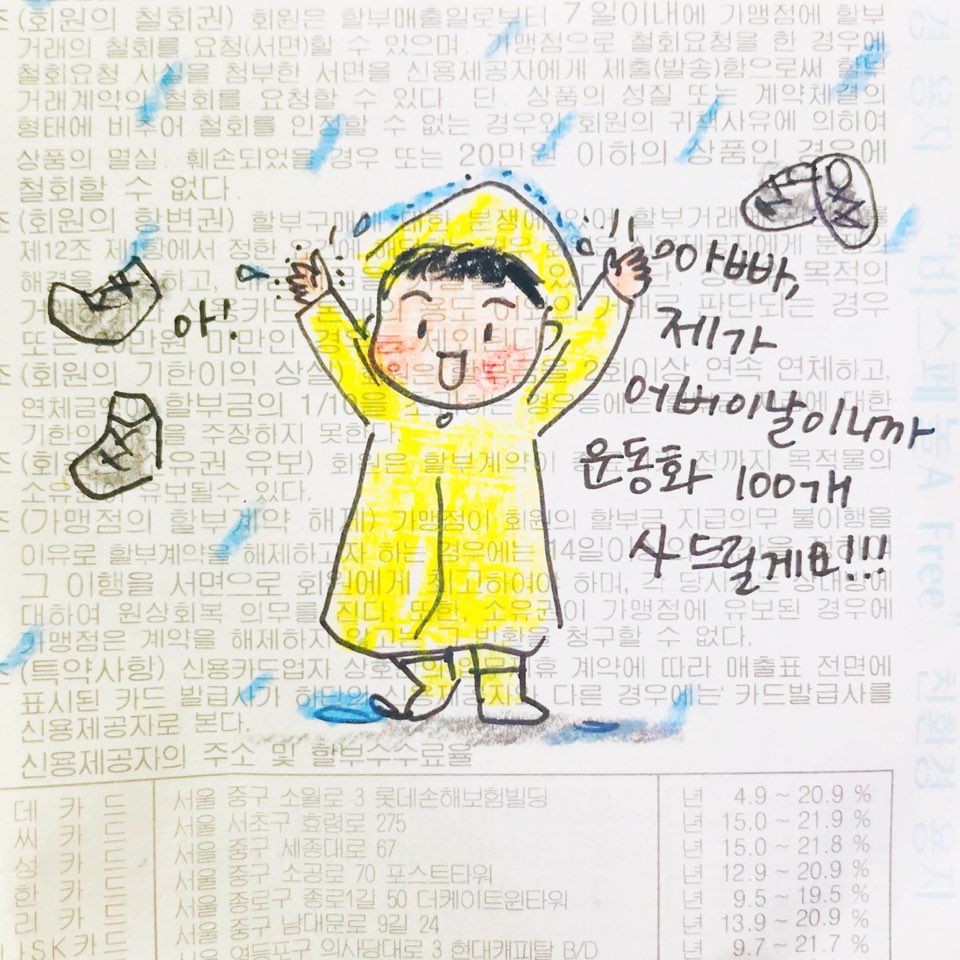 (회원의 철회권) 회원은 할부매출일로부터 7일이내에 가맹점에 할부
거래의 철회를 요청(서면)할 수 있으며, 가맹점으로 철회요청을 한 경우에
철회요청 사 을 첨부한 서면을 신용제공자에게 제출(발송)함으로써 할부
거래계약의 철회를 요청할 수 있다. 단, 상품의 성질 또는 계약체결의
형태에 비추어 철회를 인정할 수 없는 경우와 회원의 귀책사유에 의하여
상품의 멸실, 훼손되었을 경우 또는 20만원 이하의 상품인 경우에
철회할 수 없다.
(회원의 항변권) 할부구매에 대한 분쟁에 있어 할부거래
제12조 제 항에서 정한
해결을 하고, 목적의
거래 로 판단되는 경우
또는 20만원 미만인 경
아!
아빠,
제가
어버이날이니까
운동화 100개
사 드릴게요!!!
(회원의 기한이익 상실) 회원은 2회이상 연속 연체하고,
연체금 할부금의 1/10을
기한의 을 주장하지 못한다.
유권 유보) 회원은 할부계약이 전까지 목적물의
소유 유보될수 있다.
(가맹점의 할부계약 해제) 가맹점이 회원의 할부금 지급의무 불이행을
이유로 할부계약을 해제하고자 하는 경우에는 14일이
그 이행을 서면으로 회원에게 최고하여야 하며, 각 당사
대하여 원상회복 의무를 진다. 또한, 소유권이 가맹점에 유보된 경우에
가맹점은 계약을 해제하지 않고는 그 반환을 청구할 수 없다.
(특약사항) 신용카드업자 상호 휴 계약에 따라 매출표 전면에
표시된 카드 발급사가 하단의 신용제공자와 다른 경우에는 카드발급사를
신용제공자로 본다.
신용제공자의 주소 및 할부수수료율
데 카 드 서울 중구 소월로 3 롯데손해보험빌딩 년 4.9 ~ 20.9 %
씨 카 드 서울 서초구 효령로 275 년 15.0 ~ 21.9 %
성 카 드 서울 중구 세종대로 67 년 15.0 ~ 21.8 %
한 카 드 서울 중구 소공로 70 포스트타워 년 12.9 ~ 20.9 %
리 카 드 서울 종로구 종로1길 50 더케이트윈타워 년 9.5 ~ 19.5 %
서울 중구 남대문로 9길 24 년 13.9 ~ 20.9 %
SK카드 서울 영등포구 의사당대로 3 현대캐피탈 B/D 년 9.7 ~ 21.7 %
경 용지
"비스페놀A Free" 친환경 용지